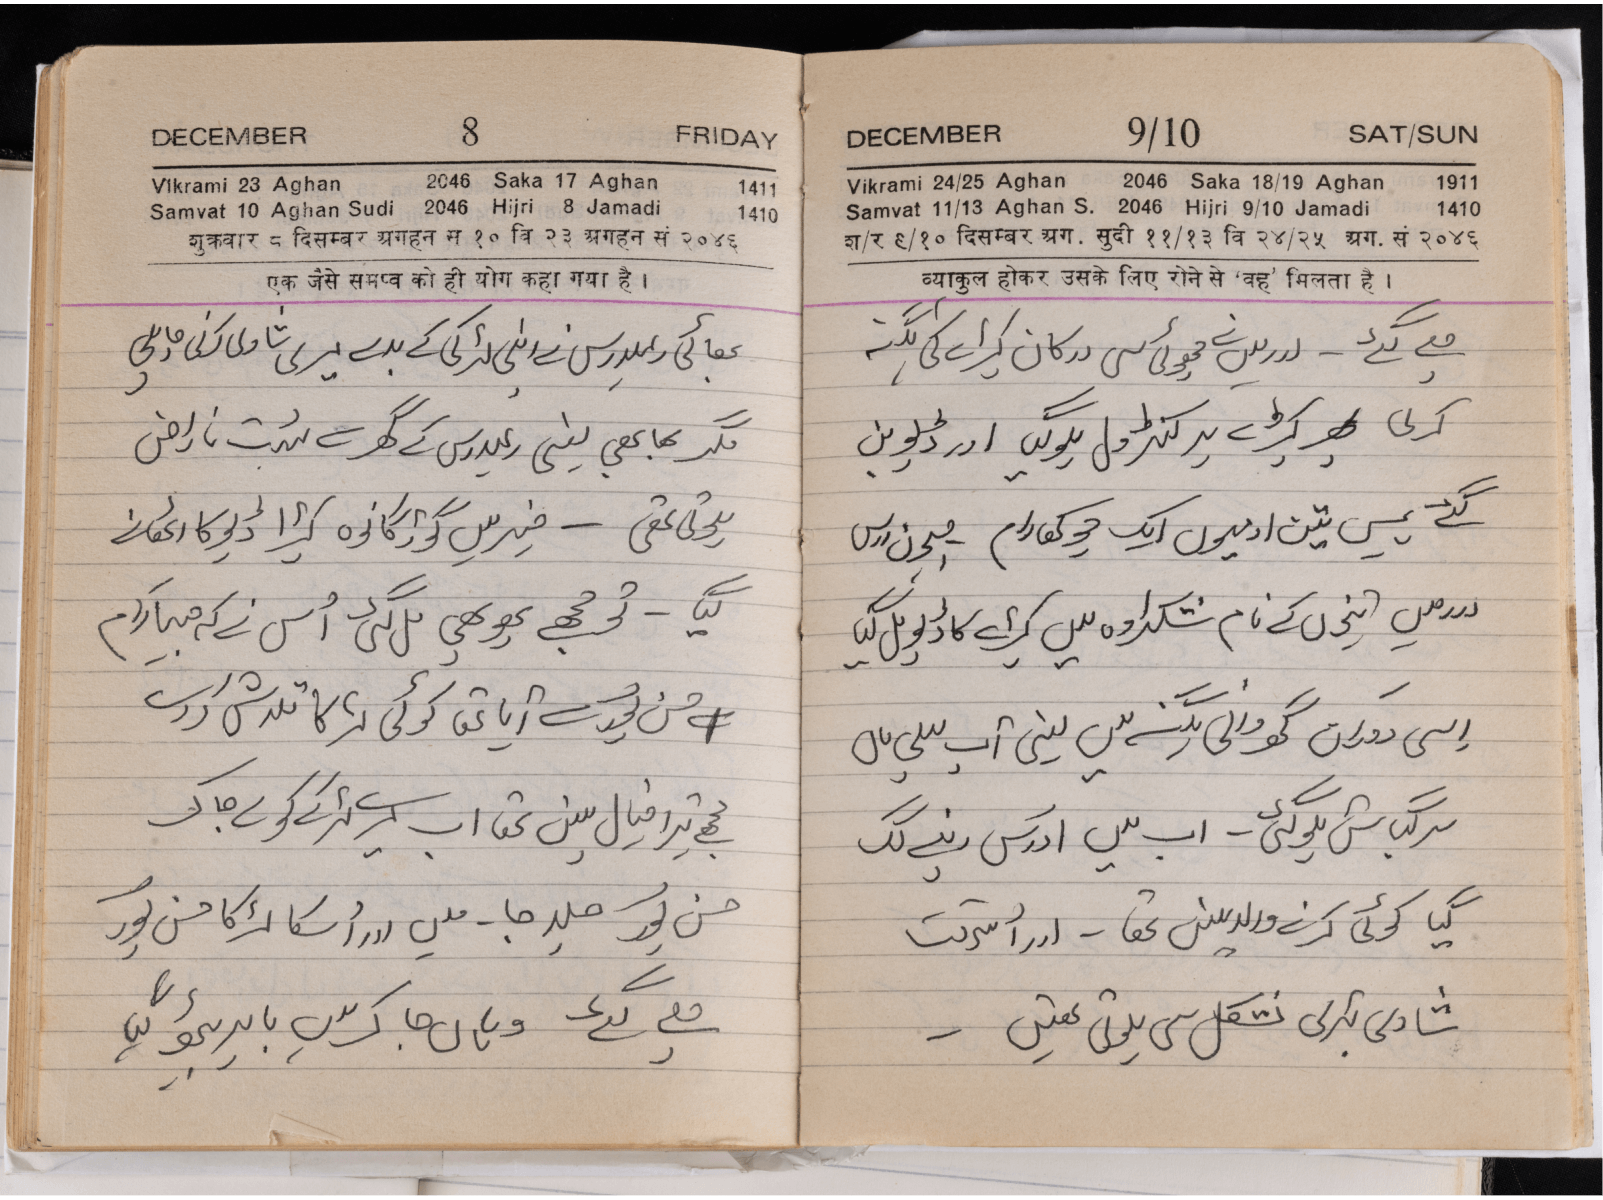 DECEMBER 8 FRIDAY
Vikrami 23 Aghan 2046 Saka 17 Aghan 1411
Samvat 10 Aghan Sudi 2046 Hijri 8 Jamadi 1410
शुक्रवार ८ दिसम्बर अगहन स १० वि २३ अगहन सं २०४६
एक जैसे समप्व को ही योग कहा गया है।
بھائی نے اپنی لڑکی کے بدلے میری شادی کرنی چاہی
مگر بھابھی یعنی کے گھر سے بہت ناراض
ہوتی تھی – خیر میں گوڑگانوہ کپڑا ڈپو کا اٹھانے
گیا – تو مجھے پھوپھی مل گئی اُس نے کہ
حسن پور سے آیا تھا کوئی لڑکا تلاش
مجھے تیرا خیال نہیں تھا اب میرے لڑکے کو لے جا کر
حسن پور چلا جا – میں اور اُسکا لڑکا حسن پور
چلے گئے وہاں جا کر میں باہر بیٹھ گیا
DECEMBER 9/10 SAT/SUN
Vikrami 24/25 Aghan 2046 Saka 18/19 Aghan 1911
Samvat 11/13 Aghan S. 2046 Hijri 9/10 Jamadi 1410
श/र ९/१० दिसम्बर अग. सुदी ११/१३ वि २४/२५ अग. सं २०४६
व्याकुल होकर उसके लिए रोने से ‘वह’ मिलता है।
چلے گئے – اور میں نے چھوٹی سی دوکان کپڑے کی
کرلی پھر کپڑے پر کنٹرول ہوگیا اور ڈپو بن
گئے تین ادمیوں ایک چوکھا رام –
اور میں تینوں کے نام میں کپڑے کا ڈپو مل گیا
اِسی دَوران میں یعنی آپ
ہوگئی – اب میں
گیا کوئی کرنے والا نہیں تھا – اور اُسوقت
شادی بڑی مشکل سی ہوتی تھیں –